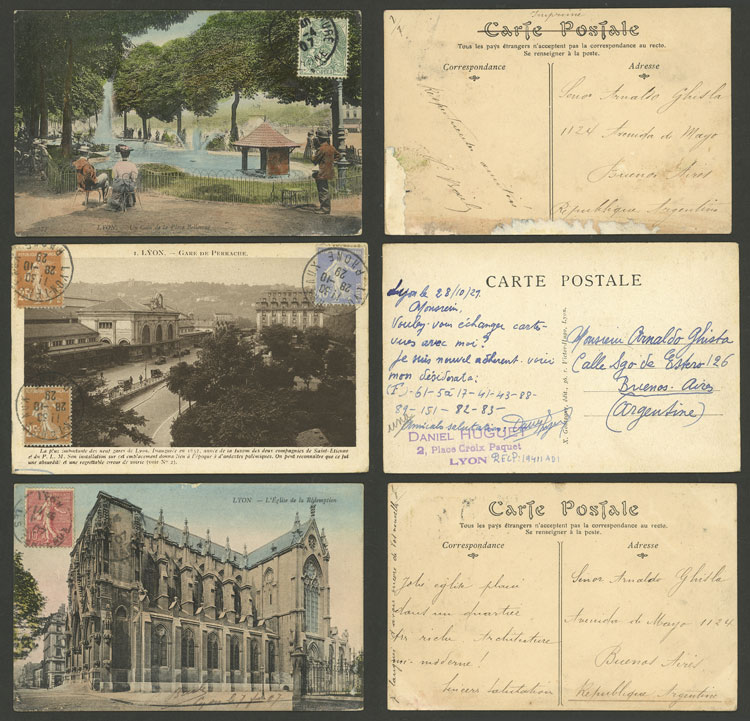 LYON.
Imprimé
Carte Postale
Tous les pays étrangers n'acceptent pas la correspondance au recto.
Se renseigner à la poste.
Correspondance
Adresse
Senor Arnaldo Ghisla
1124 Avenida de Mayo
Buenos Aires
Republique Argentine
1. LYON. — GARE DE PERRACHE.
La plus importante des neuf gares de Lyon. Inaugurée en 1857, année de la fusion des deux compagnies de Saint-Etienne
et du P. L. M. Son installation sur cet emplacement donna lieu à l'époque à d'ardentes polémiques. On peut reconnaître que ce fut
une absurdité et une regrettable erreur de voirie (voir Nº 2).
CARTE POSTALE
Lyon le 28/10/29.
Monsieur,
Voulez-vous échanger cartes-
vues avec moi?
Je suis nouvel adhérent. voici
mon désidérata:
Amicales salutations
DANIEL HUGUES
2, Place Croix Paquet
LYON
Monsieur Arnaldo Ghisla
Calle Sgo de Estero 126
Buenos-Aires
(Argentine)
LYON - L'Église de la Rédemption
Carte Postale
Tous les pays étrangers n'acceptent pas la correspondance au recto.
Se renseigner à la poste.
Correspondance
Adresse
Jolie église
dans un quartier
très riche. Architecture
moderne!
Senor Arnaldo Ghisla
Avenida de Mayo 1124
Buenos Aires
Republique Argentine